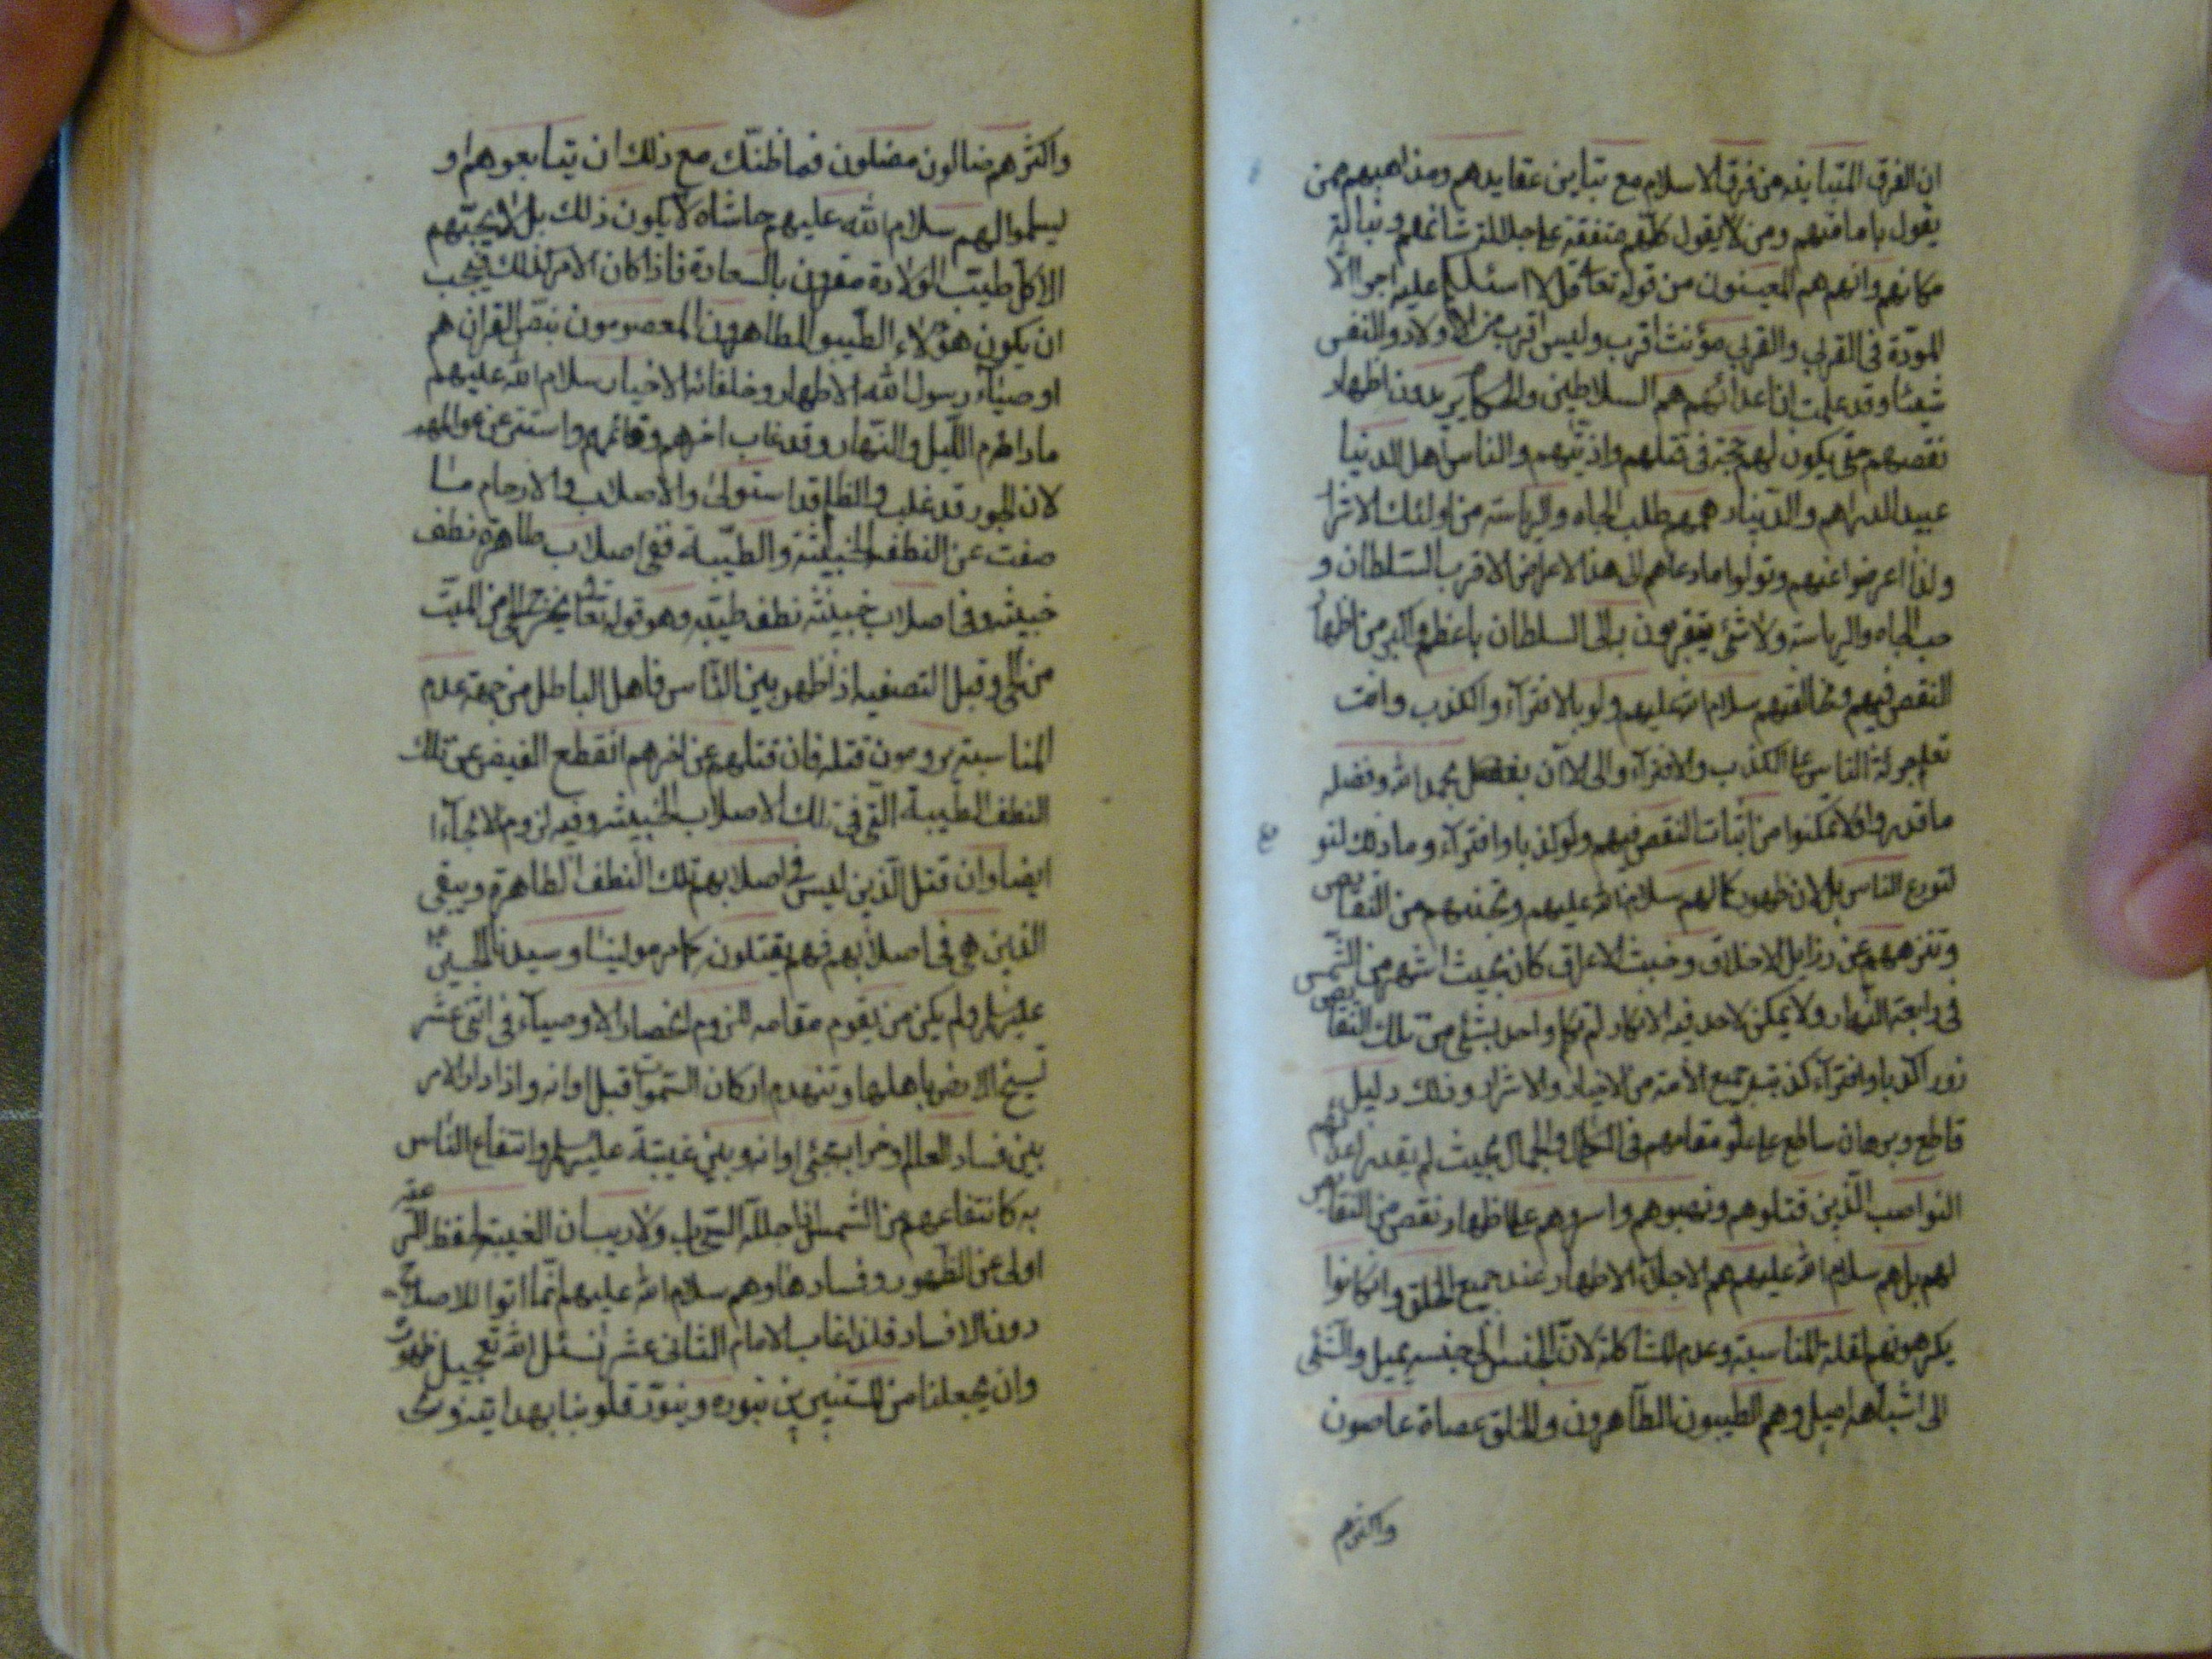 ان الفرق المتباينة من فرق الاسلام مع تباين عقايدهم ومذاهبهم ممن
يقول بامامتهم ومن لا يقول كلهم متفقة على جلالة شانهم ونبالة
مكانهم وانهم هم المعينون من قوله تعا قل لا اسئلكم عليه اجرا الا
المودّة في القربى والقربى مؤنث اقرب وليس اقرب من الاولاد والنفس
شيئا وقد علمت ان اعدائهم هم السلاطين والحكام يريدون اظهار
نقصهم حتى يكون لهم حجة في قتلهم واذيتهم والناس اهل الدنيا
عبيد الدراهم والدينار همهم طلب الجاه والرياسة من اولئك الاشرار
ولذا اعرضوا عنهم وتولوا ما دعاهم الى هذا الاعراض الا قرب السلطان و
حب الجاه والرياسة ولا شئ يتقربون به الى السلطان باعظم واكبر من اظهار
النقص فيهم ومخالفتهم سلام الله عليهم ولو بالافتراء والكذب وانت
تعلم جرئة الناس على الكذب والافتراء والى الآن بفضل بحمد الله وفضله
ما قدروا ولا تمكنوا من اثبات النقص فيهم ولو كذبا وافتراء وما ذلك لتو
لتورع الناس بل لان ظهور كمالهم سلام الله عليهم وتجنبهم من النقايص
وتنزههم عن رذايل الاخلاق وخبث الاعراق كان بحيث اشهر من الشمس
في رابعة النهار ولا يمكن لاحد فيه الانكار لو تكلم واحد بشئ من تلك النقايص
زورا كذبا وافتراء كذبته جميع الامة من الاخيار والاشرار وذلك دليل
قاطع وبرهان ساطع على علو مقامهم في الكمال والجمال بحيث لم يقدر اعدائهم
النواصب الذين قتلوهم ونهبوهم واسروهم على اظهار نقص من النقايص
لهم بل هم سلام الله عليهم هم الاجلة الاطهار عند جميع الخلق وان كانوا
يكرهونهم لقلة المناسبة وعدم المشاكلة لان الجنس الى جنسه يميل والشئ
الى اشباهه اميل وهم الطيبون الطاهرون والخلق عصاة عاصون
واكثرهم
واكثرهم ضالون مضلون فما ظنك مع ذلك ان يتابعوهم او
ليسلموا لهم سلام الله عليهم حاشاه لا يكون ذلك بل لا يحبهم
الا كل طيب الولادة مقرون بالسعادة فاذا كان الامر كذلك فيجب
ان يكون هؤلاء الطيبون الطاهرون المعصومون بنص القران هم
اوصياء رسول الله الاطهار وخلفائه الاخيار سلام الله عليهم
ما دام الليل والنهار وقد غاب اخرهم وقائمهم واستتر عن عوالمهم
لان الجور قد غلب والظلم قد استولى والاصلاب والارحام ما
صفت عن النطفة الخبيثة والطيبة ففي اصلاب طاهرة نطف
خبيثة وفي اصلاب خبيثة نطف طيبة وهو قوله تعا يخرج الحي من الميت
من الحي وقبل التصفية اذ اظهر بين الناس فاهل الباطل من جهة عدم
المناسبة يرومون قتله فان قتلهم عن اخرهم انقطع الفيض عن تلك
النطف الطيبة التي في تلك الاصلاب الخبيثة وفيه لزوم الالجاء
ايضا وان قتل الذين ليس في اصلابهم تلك النطف الطاهرة ويبقى
الذين هي في اصلابهم فهم يقتلونه كما مر مولينا وسيدنا الحسين
عليه السلم ولم يكن من يقوم مقامه للزوم انحصار الاوصياء في اثنى عشر
تسيخ الارض باهلها وتنهدم اركان السموات قبل اوانه واذا دار الامر
بين فساد العالم وخرابه قبل اوانه وبين غيبته عليه السلم وانتفاع الناس
به كانتفاعهم من الشمس اذا جللها السحاب ولا ريب ان الغيبة لحفظ
اولى من الظهور وفسادها وهم سلام الله عليهم انما اتوا للاصلاح
دون الافساد فلذا غاب الامام الثانى عشر نسئل الله تعجيل ظهوره
وان يجعلنا من المستنيرين بنوره وينوّر قلوبنا بهدايته